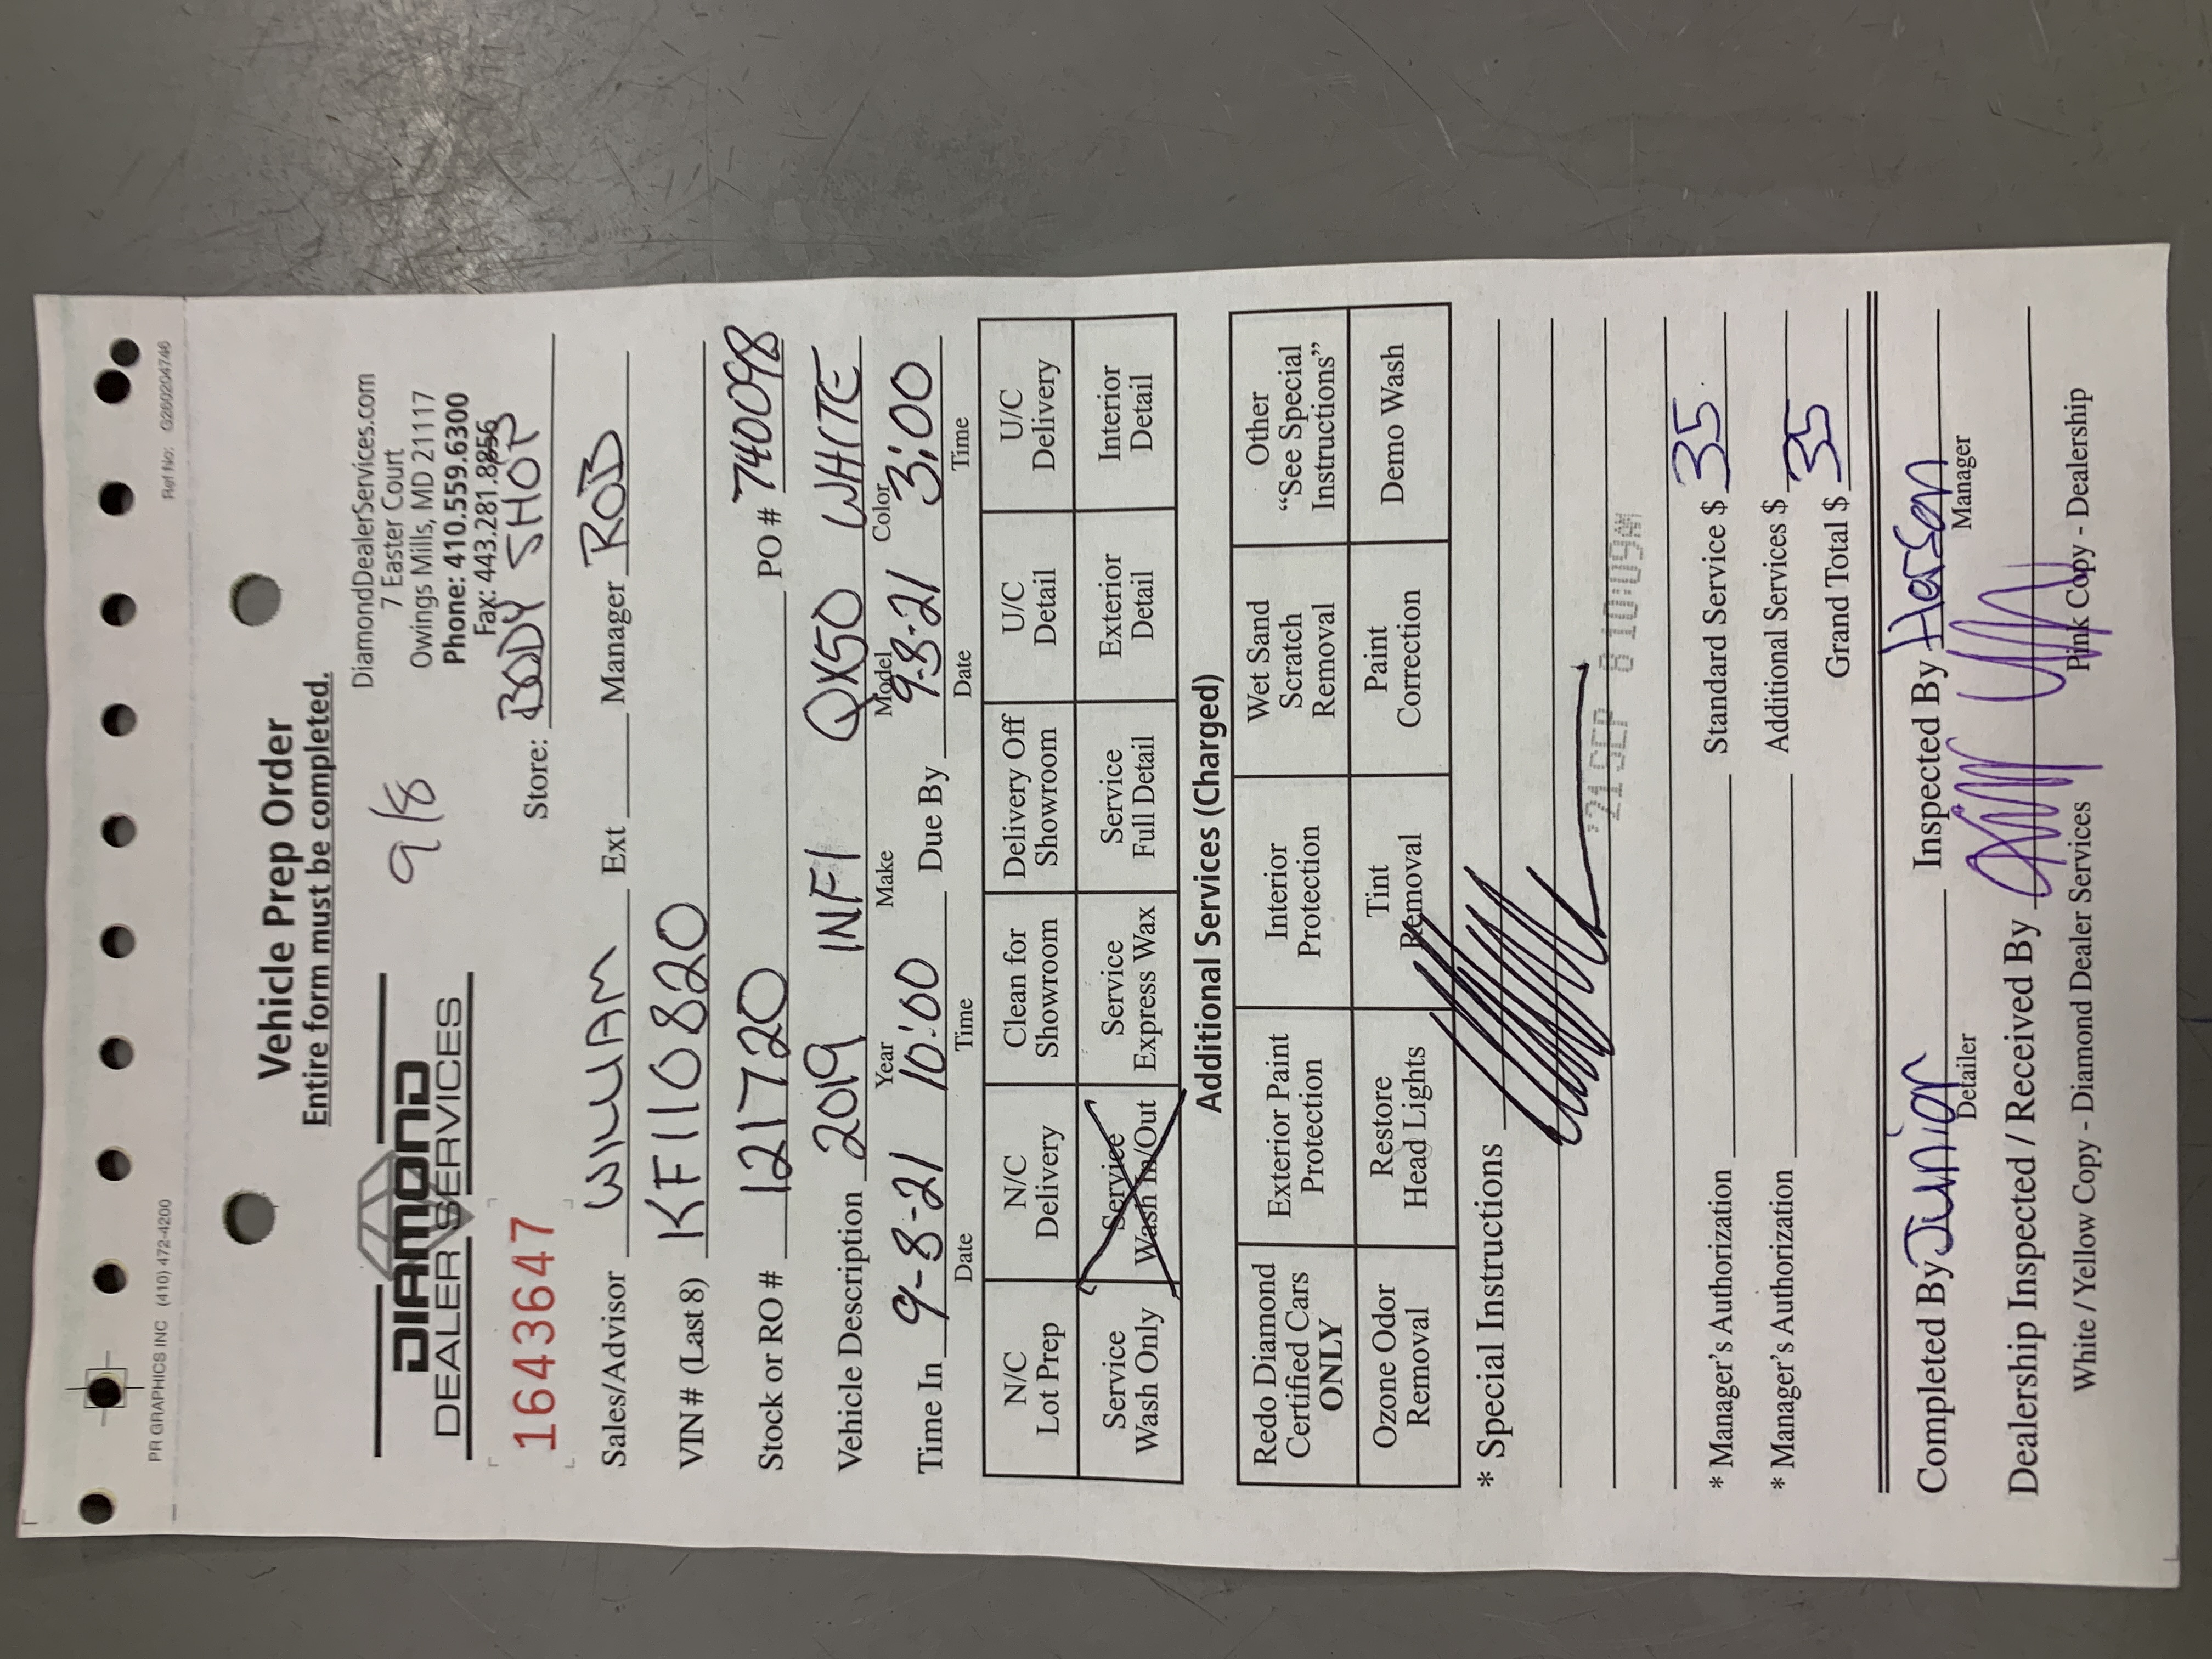 PR GRAPHICS INC (410) 472-4200 Ref No: G260204746
Vehicle Prep Order
Entire form must be completed.
DIAMOND
DEALER SERVICES
9/8
DiamondDealerServices.com
7 Easter Court
Owings Mills, MD 21117
Phone: 410.559.6300
Fax: 443.281.8856
1643647
Store: BODY SHOP
Sales/Advisor WILLIAM Ext Manager ROB
VIN # (Last 8) KF110820
Stock or RO # 121720 PO # 740098
Vehicle Description 2019 INFI QX50 WHITE
Year Make Model Color
Time In 9-8-21 10:00 Due By 9-8-21 3:00
Date Time Date Time
N/C Lot Prep
N/C Delivery
Clean for Showroom
Delivery Off Showroom
U/C Detail
U/C Delivery
Service Wash Only
Service Wash In/Out
Service Express Wax
Service Full Detail
Exterior Detail
Interior Detail
Additional Services (Charged)
Redo Diamond Certified Cars ONLY
Exterior Paint Protection
Interior Protection
Wet Sand Scratch Removal
Other "See Special Instructions"
Ozone Odor Removal
Restore Head Lights
Tint Removal
Paint Correction
Demo Wash
* Special Instructions
'21 SEP 8 10:09AM
* Manager's Authorization Standard Service $ 35
* Manager's Authorization Additional Services $
Grand Total $ 35
Completed By Junior Inspected By
Detailer Manager
Dealership Inspected / Received By
White / Yellow Copy - Diamond Dealer Services Pink Copy - Dealership